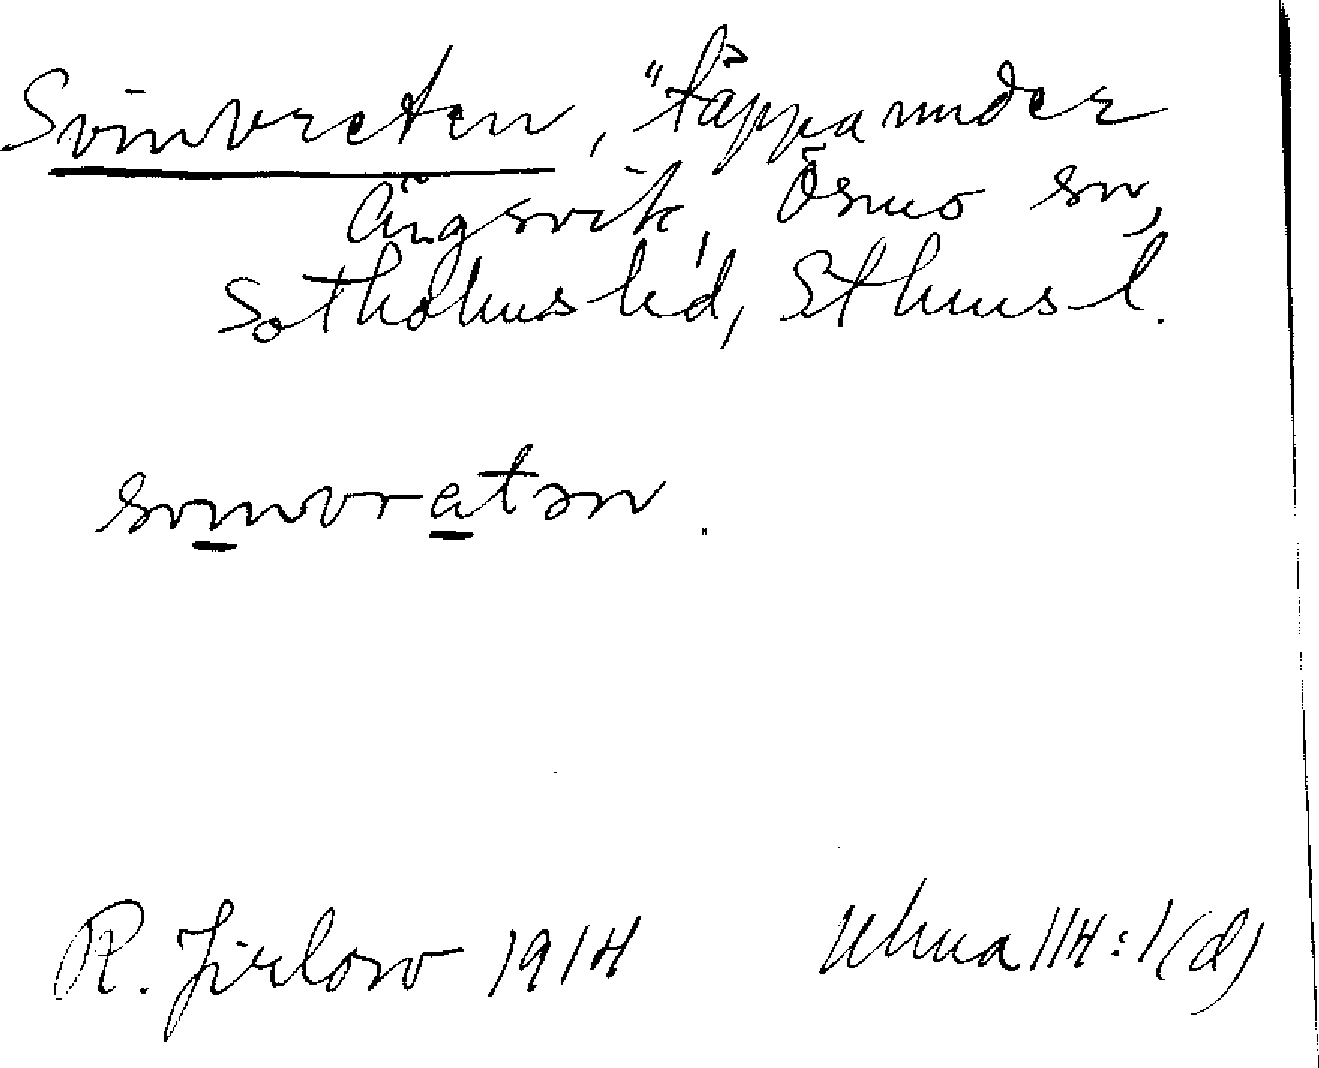 Svinvreten, "täppa" under
Ängsvik, Ösmo sn,
Sotholms hd, Sthms l.
svinvretən.
R. Jirlow 1914 Ulma 114:1(d)